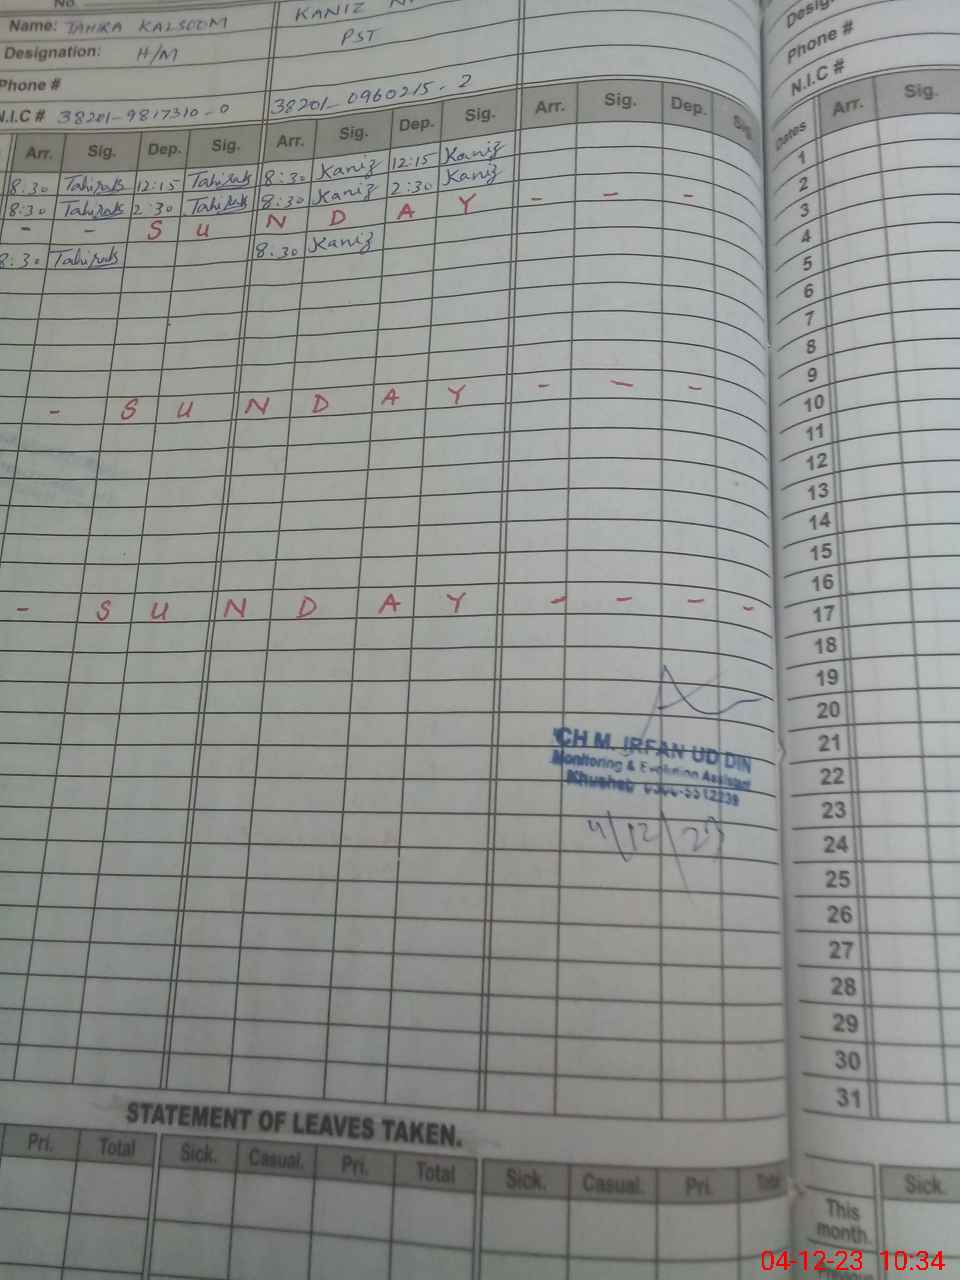 No
Name: TAHIRA KALSOOM
KANIZ
Designation: H/M
PST
Phone #
N.I.C # 38201-9817310-0
38201-0960215-2
Arr. Sig. Dep. Sig. Arr. Sig. Dep. Sig. Arr. Sig. Dep. Sig
8:30 12:15 8:30 Kaniz 12:15 Kaniz
8:30 2:30 8:30 Kaniz 2:30 Kaniz
- - S U N D A Y - - -
8:30 8:30 Kaniz
- S U N D A Y - - -
- S U N D A Y - - - -
CH M. IRFAN UD DIN
Monitoring & Assistant
Khushab
4/12/23
STATEMENT OF LEAVES TAKEN.
Pri. Total Sick. Casual. Pri. Total Sick. Casual. Pri. Total
Phone #
N.I.C #
Dates Arr. Sig.
1
2
3
4
5
6
7
8
9
10
11
12
13
14
15
16
17
18
19
20
21
22
23
24
25
26
27
28
29
30
31
Sick.
This
month.
04-12-23 10:34